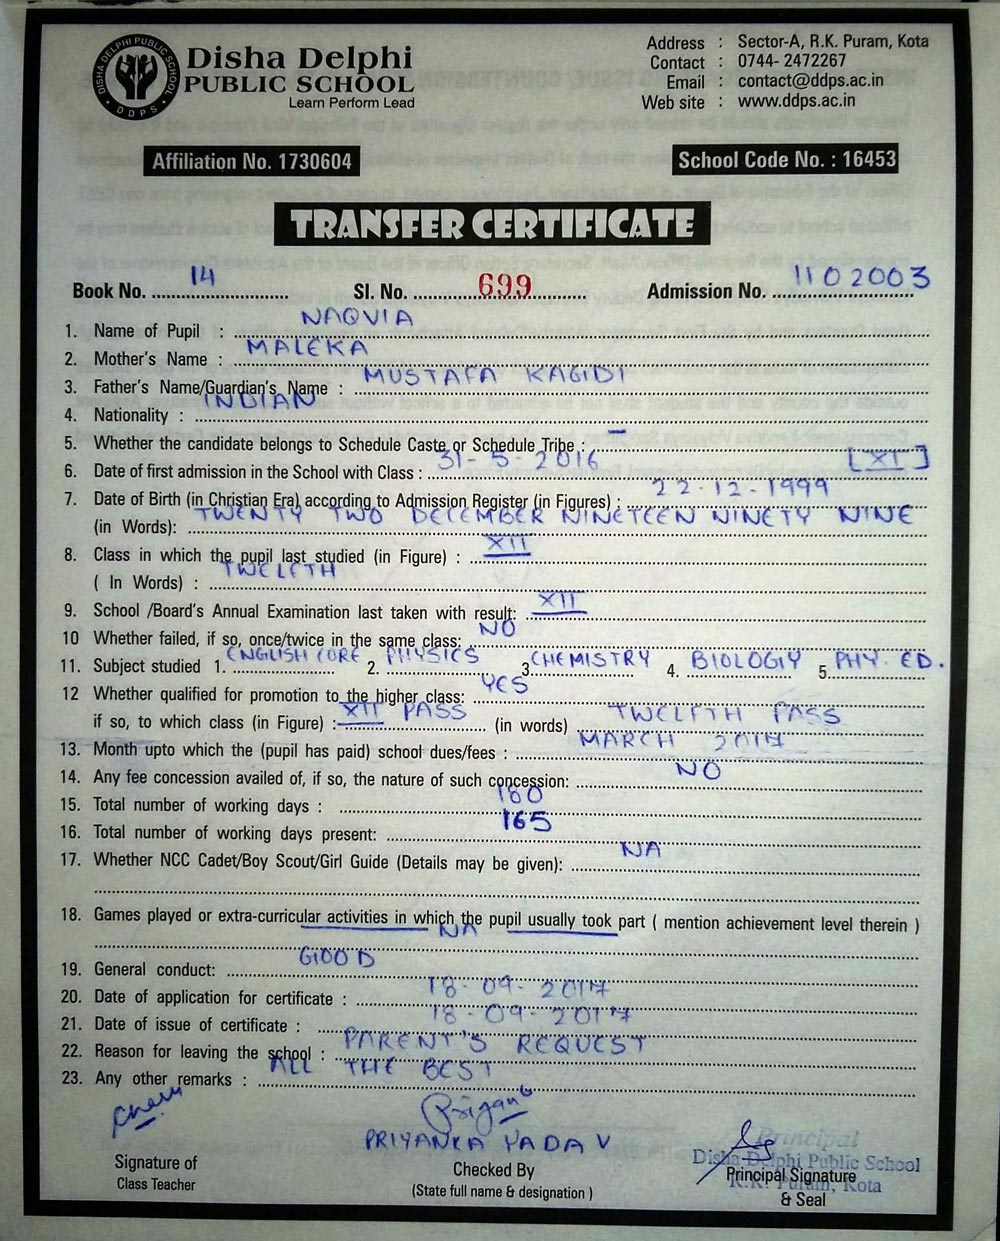 Disha Delphi
PUBLIC SCHOOL
Learn Perform Lead
DISHA DELPHI PUBLIC SCHOOL
DDPS
Address : Sector-A, R.K. Puram, Kota
Contact : 0744- 2472267
Email : contact@ddps.ac.in
Web site : www.ddps.ac.in
Affiliation No. 1730604
School Code No. : 16453
TRANSFER CERTIFICATE
Book No. 14 Sl. No. 699 Admission No. 1102003
1. Name of Pupil : NAQVIA
2. Mother's Name : MALEKA
3. Father's Name/Guardian's Name : MUSTAFA KAGIDI
4. Nationality : INDIAN
5. Whether the candidate belongs to Schedule Caste or Schedule Tribe : —
6. Date of first admission in the School with Class : 31-5-2016 [XI]
7. Date of Birth (in Christian Era) according to Admission Register (in Figures) : 22-12-1999
(in Words): TWENTY TWO DECEMBER NINETEEN NINETY NINE
8. Class in which the pupil last studied (in Figure) : XII
( In Words) : TWELFTH
9. School /Board's Annual Examination last taken with result: XII
10 Whether failed, if so, once/twice in the same class: NO
11. Subject studied 1. ENGLISH CORE 2. PHYSICS 3. CHEMISTRY 4. BIOLOGY 5. PHY. ED.
12 Whether qualified for promotion to the higher class: YES
if so, to which class (in Figure) : XII PASS (in words) TWELFTH PASS
13. Month upto which the (pupil has paid) school dues/fees : MARCH 2017
14. Any fee concession availed of, if so, the nature of such concession: NO
15. Total number of working days : 180
16. Total number of working days present: 165
17. Whether NCC Cadet/Boy Scout/Girl Guide (Details may be given): NA
18. Games played or extra-curricular activities in which the pupil usually took part ( mention achievement level therein )
NA
19. General conduct: GOOD
20. Date of application for certificate : 18-09-2017
21. Date of issue of certificate : 18-09-2017
22. Reason for leaving the school : PARENT'S REQUEST
23. Any other remarks : ALL THE BEST
PRIYANKA YADAV
Signature of
Class Teacher
Checked By
(State full name & designation )
Principal
Disha Delphi Public School
R.K. Puram, Kota
Principal Signature
& Seal